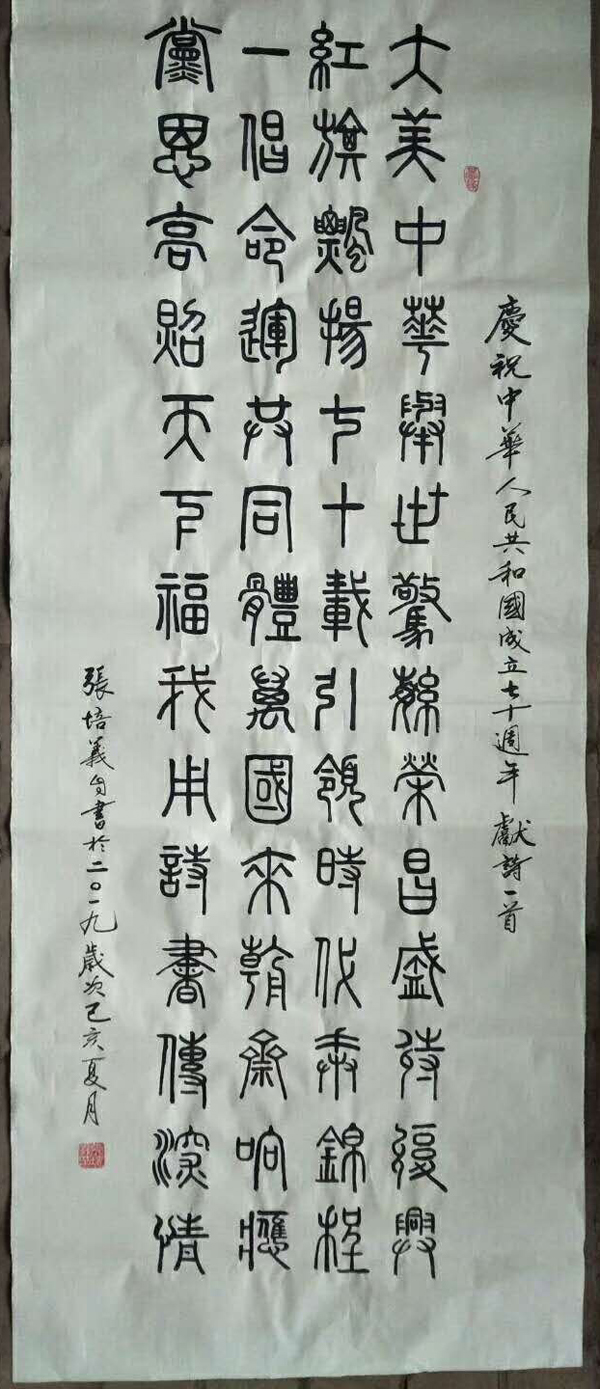 慶祝中華人民共和國成立七十週年獻詩一首
大美中華舉世驚繁榮昌盛待復興
紅旗飄揚七十載引領時代奔錦程
一倡命運共同體萬國來朝齊响應
黨恩高照天下福我用詩書傳深情
張培義自書於二〇一九歲次己亥夏月